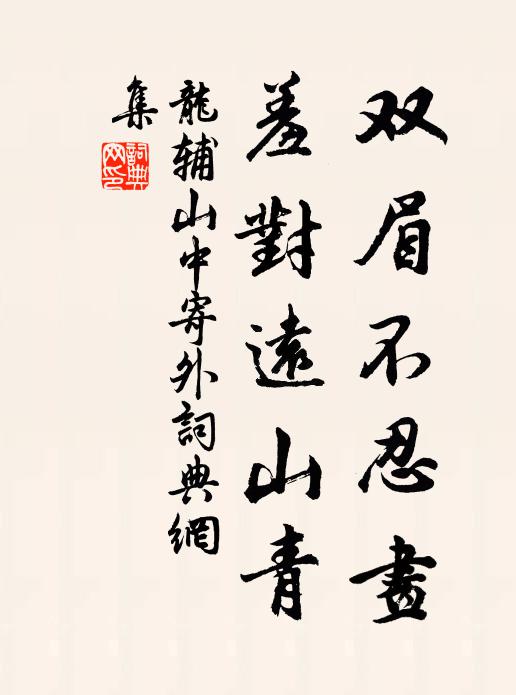 双眉不忍畫
羞對遠山青
龍輔山中寄外詞典網
集
詞典
网印